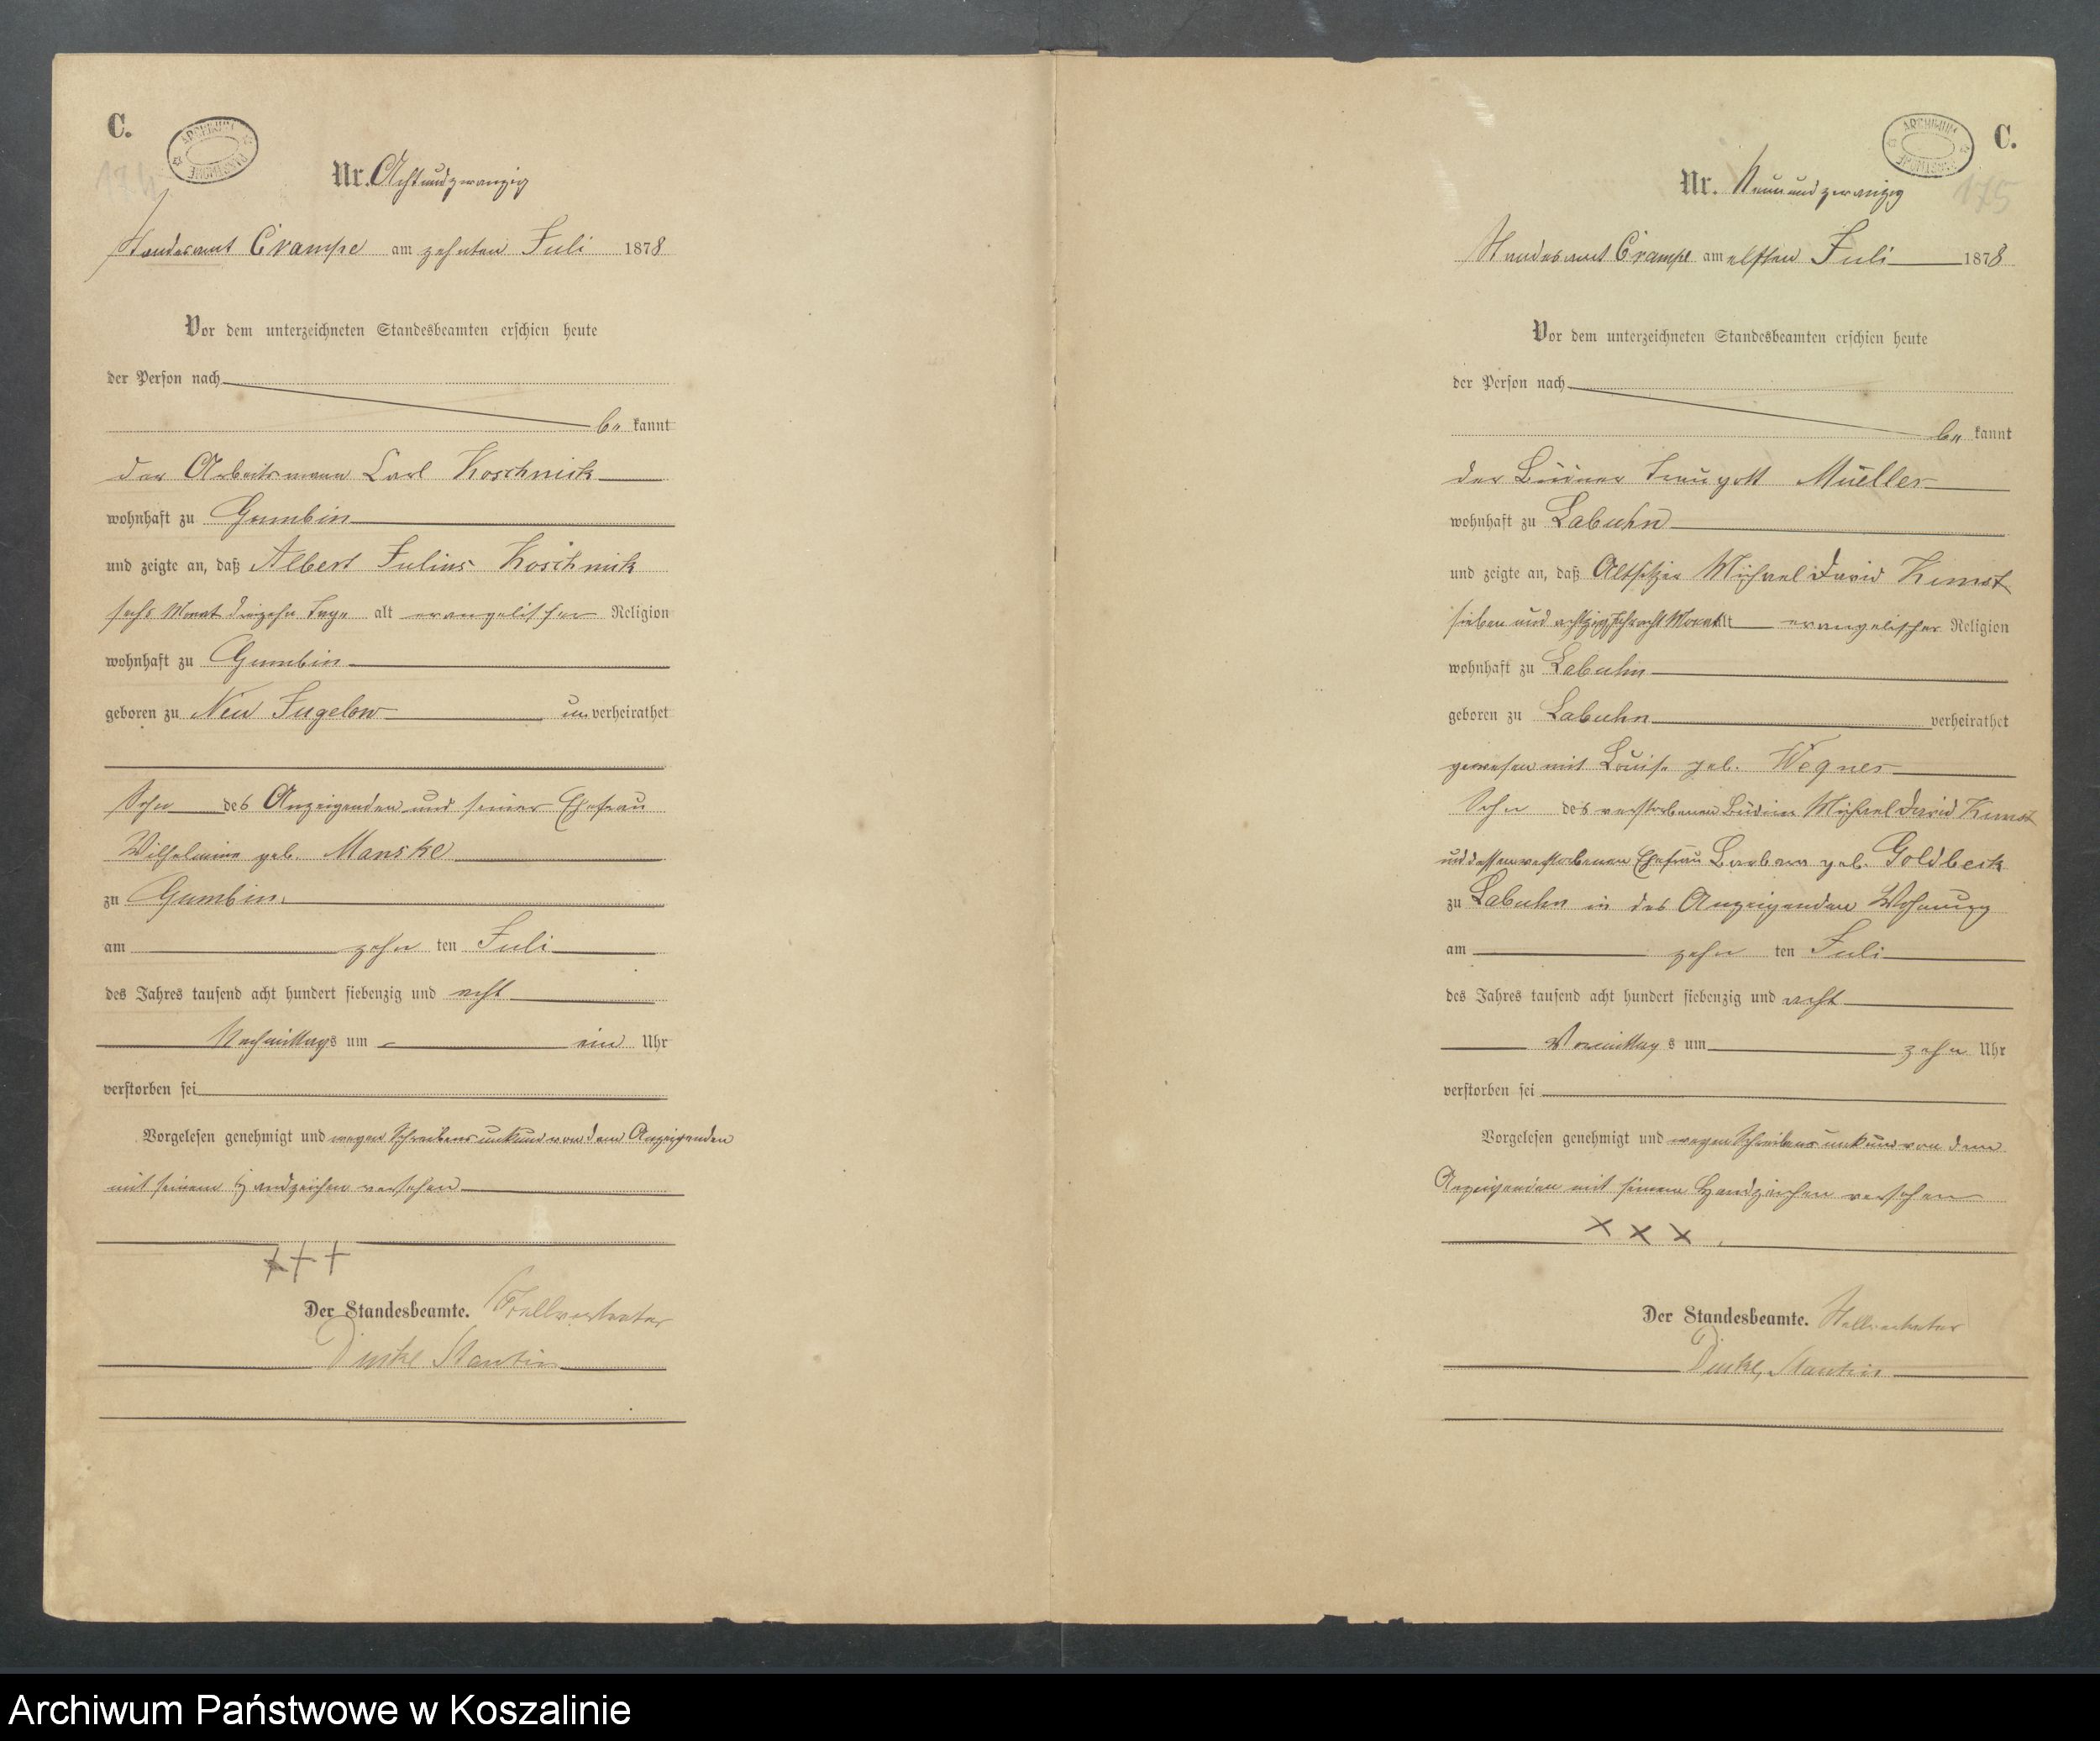 C.
ARCHIWUM PAŃSTWOWE
174
Nr. Achtundzwanzig
Standesamt Crampe am zehnten Juli 1878
Vor dem unterzeichneten Standesbeamten erschien heute
der Person nach
be kannt
der Arbeitsmann Carl Koschnick
wohnhaft zu Gumbin
und zeigte an, daß Albert Julius Koschnick
sechs Monat dreizehn Tage alt evangelischer Religion
wohnhaft zu Gumbin
geboren zu Neu Jugelow un verheirathet
Sohn des Anzeigenden und seiner Ehefrau
Wilhelmine geb. Manske
zu Gumbin,
am zehn ten Juli
des Jahres tausend acht hundert siebenzig und acht
Nachmittags um ein Uhr
verstorben sei
Vorgelesen genehmigt und wegen Schreibensunkund von dem Anzeigenden
mit seinem Handzeichen versehen
+++
Der Standesbeamte. Stellvertreter
Dinkl
ARCHIWUM PAŃSTWOWE
C.
175
Nr. Neunundzwanzig
Standesamt Crampe am elften Juli 1878
Vor dem unterzeichneten Standesbeamten erschien heute
der Person nach
be kannt
der Büdner Traugott Mueller
wohnhaft zu Labuhn
und zeigte an, daß Altsitzer Michael David
sieben und achtzig Jahr acht Monat alt evangelischer Religion
wohnhaft zu Labuhn
geboren zu Labuhn verheirathet
gewesen mit Louise geb. Wegner
Sohn des verstorbenen Büdner Michael David
und dessen verstorbenen Ehefrau Barbara geb. Goldbeck
zu Labuhn in des Anzeigenden Wohnung
am zehn ten Juli
des Jahres tausend acht hundert siebenzig und acht
Vormittag s um zehn Uhr
verstorben sei
Vorgelesen genehmigt und wegen Schreibensunkund von dem
Anzeigenden mit seinem Handzeichen versehen
XXX.
Der Standesbeamte. Stellvertreter
Archiwum Państwowe w Koszalinie